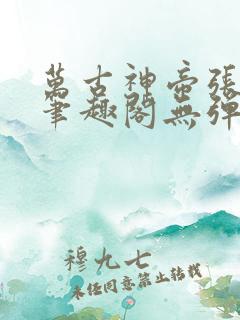 萬古神帝張
筆趣閣無彈
穆九七
未經同意禁止轉載